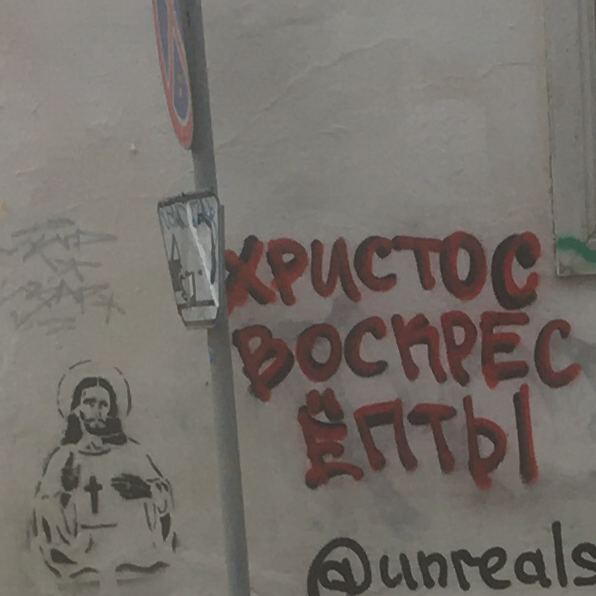 ХРИСТОС
ВОСКРЕС
ЁПТЫ
@unreals